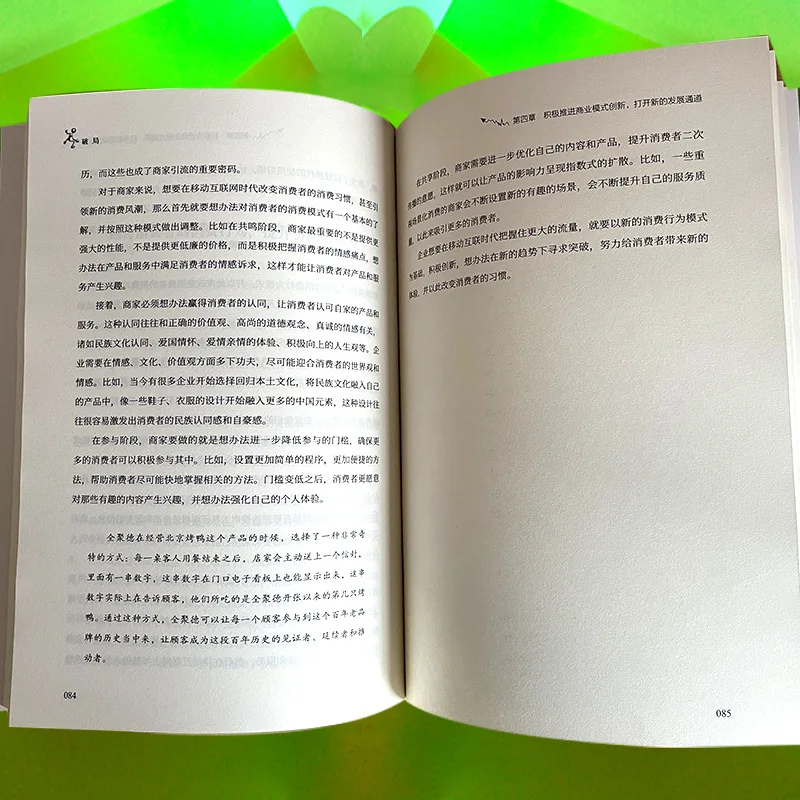 破局
历，而这些也成了商家引流的重要密码。
对于商家来说，想要在移动互联网时代改变消费者的消费习惯，甚至引
领新的消费风潮，那么首先就要想办法对消费者的消费模式有一个基本的了
解，并按照这种模式做出调整。比如在共鸣阶段，商家最重要的不是提供更
强大的性能，不是提供更低廉的价格，而是积极把握消费者的情感痛点，想
办法在产品和服务中满足消费者的情感诉求，这样才能让消费者对产品和服
务产生兴趣。
接着，商家必须想办法赢得消费者的认同，让消费者认可自家的产品和
服务。这种认同往往和正确的价值观、高尚的道德观念、真诚的情感有关，
诸如民族文化认同、爱国情怀、爱情亲情的体验、积极向上的人生观等。企
业需要在情感、文化、价值观方面多下功夫，尽可能迎合消费者的世界观和
情感。比如，当今有很多企业开始选择回归本土文化，将民族文化融入自己
的产品中，像一些鞋子、衣服的设计开始融入更多的中国元素，这种设计往
往很容易激发出消费者的民族认同感和自豪感。
在参与阶段，商家要做的就是想办法进一步降低参与的门槛，确保更
多的消费者可以积极参与其中。比如，设置更加简单的程序，更加便捷的方
法，帮助消费者尽可能快地掌握相关的方法。门槛变低之后，消费者更愿意
对那些有趣的内容产生兴趣，并想办法强化自己的个人体验。
全聚德在经营北京烤鸭这个产品的时候，选择了一种非常奇
特的方式：每一桌客人用餐结束之后，店家会主动送上一个信封，
里面有一串数字，这串数字在门口电子看板上也能显示出来，这串
数字实际上在告诉顾客，他们所吃的是全聚德开张以来的第几只烤
鸭。通过这种方式，全聚德可以让每一个顾客参与到这个百年老品
牌的历史当中来，让顾客成为这段百年历史的见证者、延续者和推
动者。
084
第四章 积极推进商业模式创新，打开新的发展通道
在共享阶段，商家需要进一步优化自己的内容和产品，提升消费者二次
传播的意愿，这样就可以让产品的影响力呈现指数式的扩散。比如，一些重
视场景化消费的商家会不断设置新的有趣的场景，会不断提升自己的服务质
量，以此来吸引更多的消费者。
企业想要在移动互联时代把握住更大的流量，就要以新的消费行为模式
为基础，积极创新，想办法在新的趋势下寻求突破，努力给消费者带来新的
体验，并以此改变消费者的习惯。
085